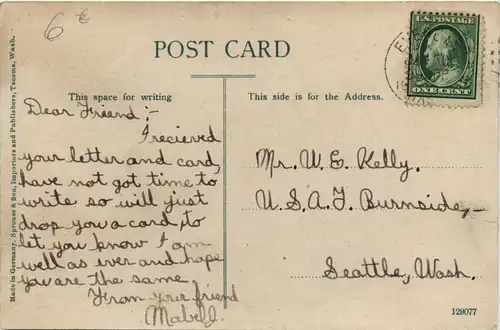 6 €
POST CARD
U.S. POSTAGE
ONE CENT
This space for writing
This side is for the Address.
Dear Friend:-
I recieved
your letter and card,
have not got time to
write so will just
drop you a card, to
let you know I am
well as ever and hope
you are the same
From your friend
Mr. W. E. Kelly.
U.S.A.T. Burnside,
Seattle, Wash.
Made in Germany, Sprouse & Son, Importers and Publishers, Tacoma, Wash.
129077